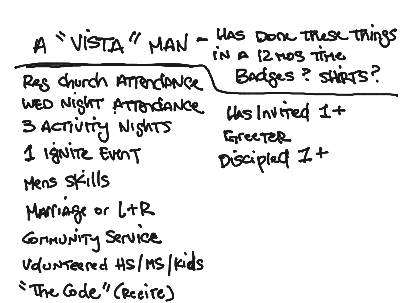 A "VISTA" MAN - HAS DONE THESE THINGS
IN A 12 MOS TIME
BADGES? SHIRTS?
REG CHURCH ATTENDANCE
WED NIGHT ATTENDANCE
3 ACTIVITY NIGHTS
1 IGNITE EVENT
MENS SKILLS
MARRIAGE OR L+R
COMMUNITY SERVICE
VOLUNTEERED HS/MS/KIDS
"THE CODE" (RECITE)
HAS INVITED 1+
GREETER
DISCIPLED 1+